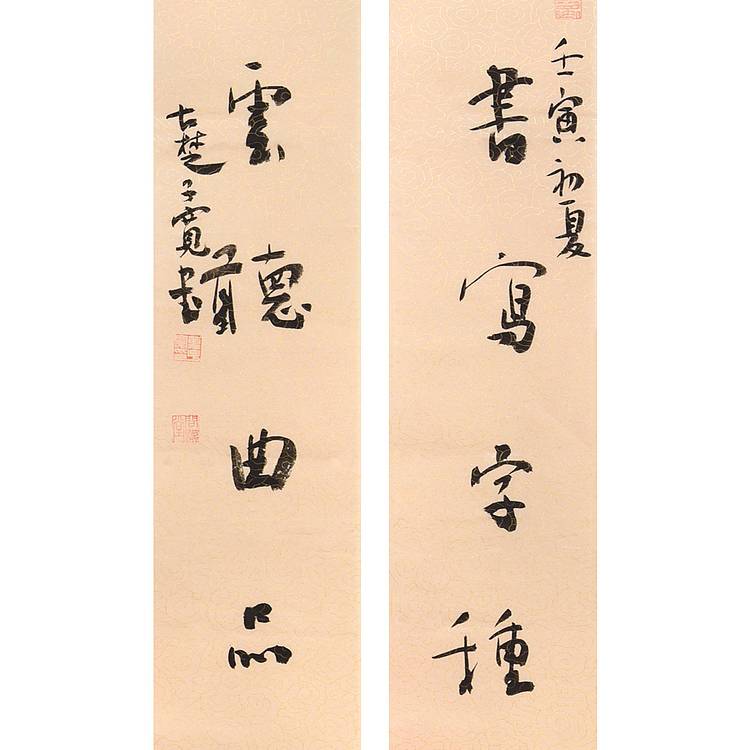 壬寅初夏
書寫字種
雲聽曲品
古楚子寬書